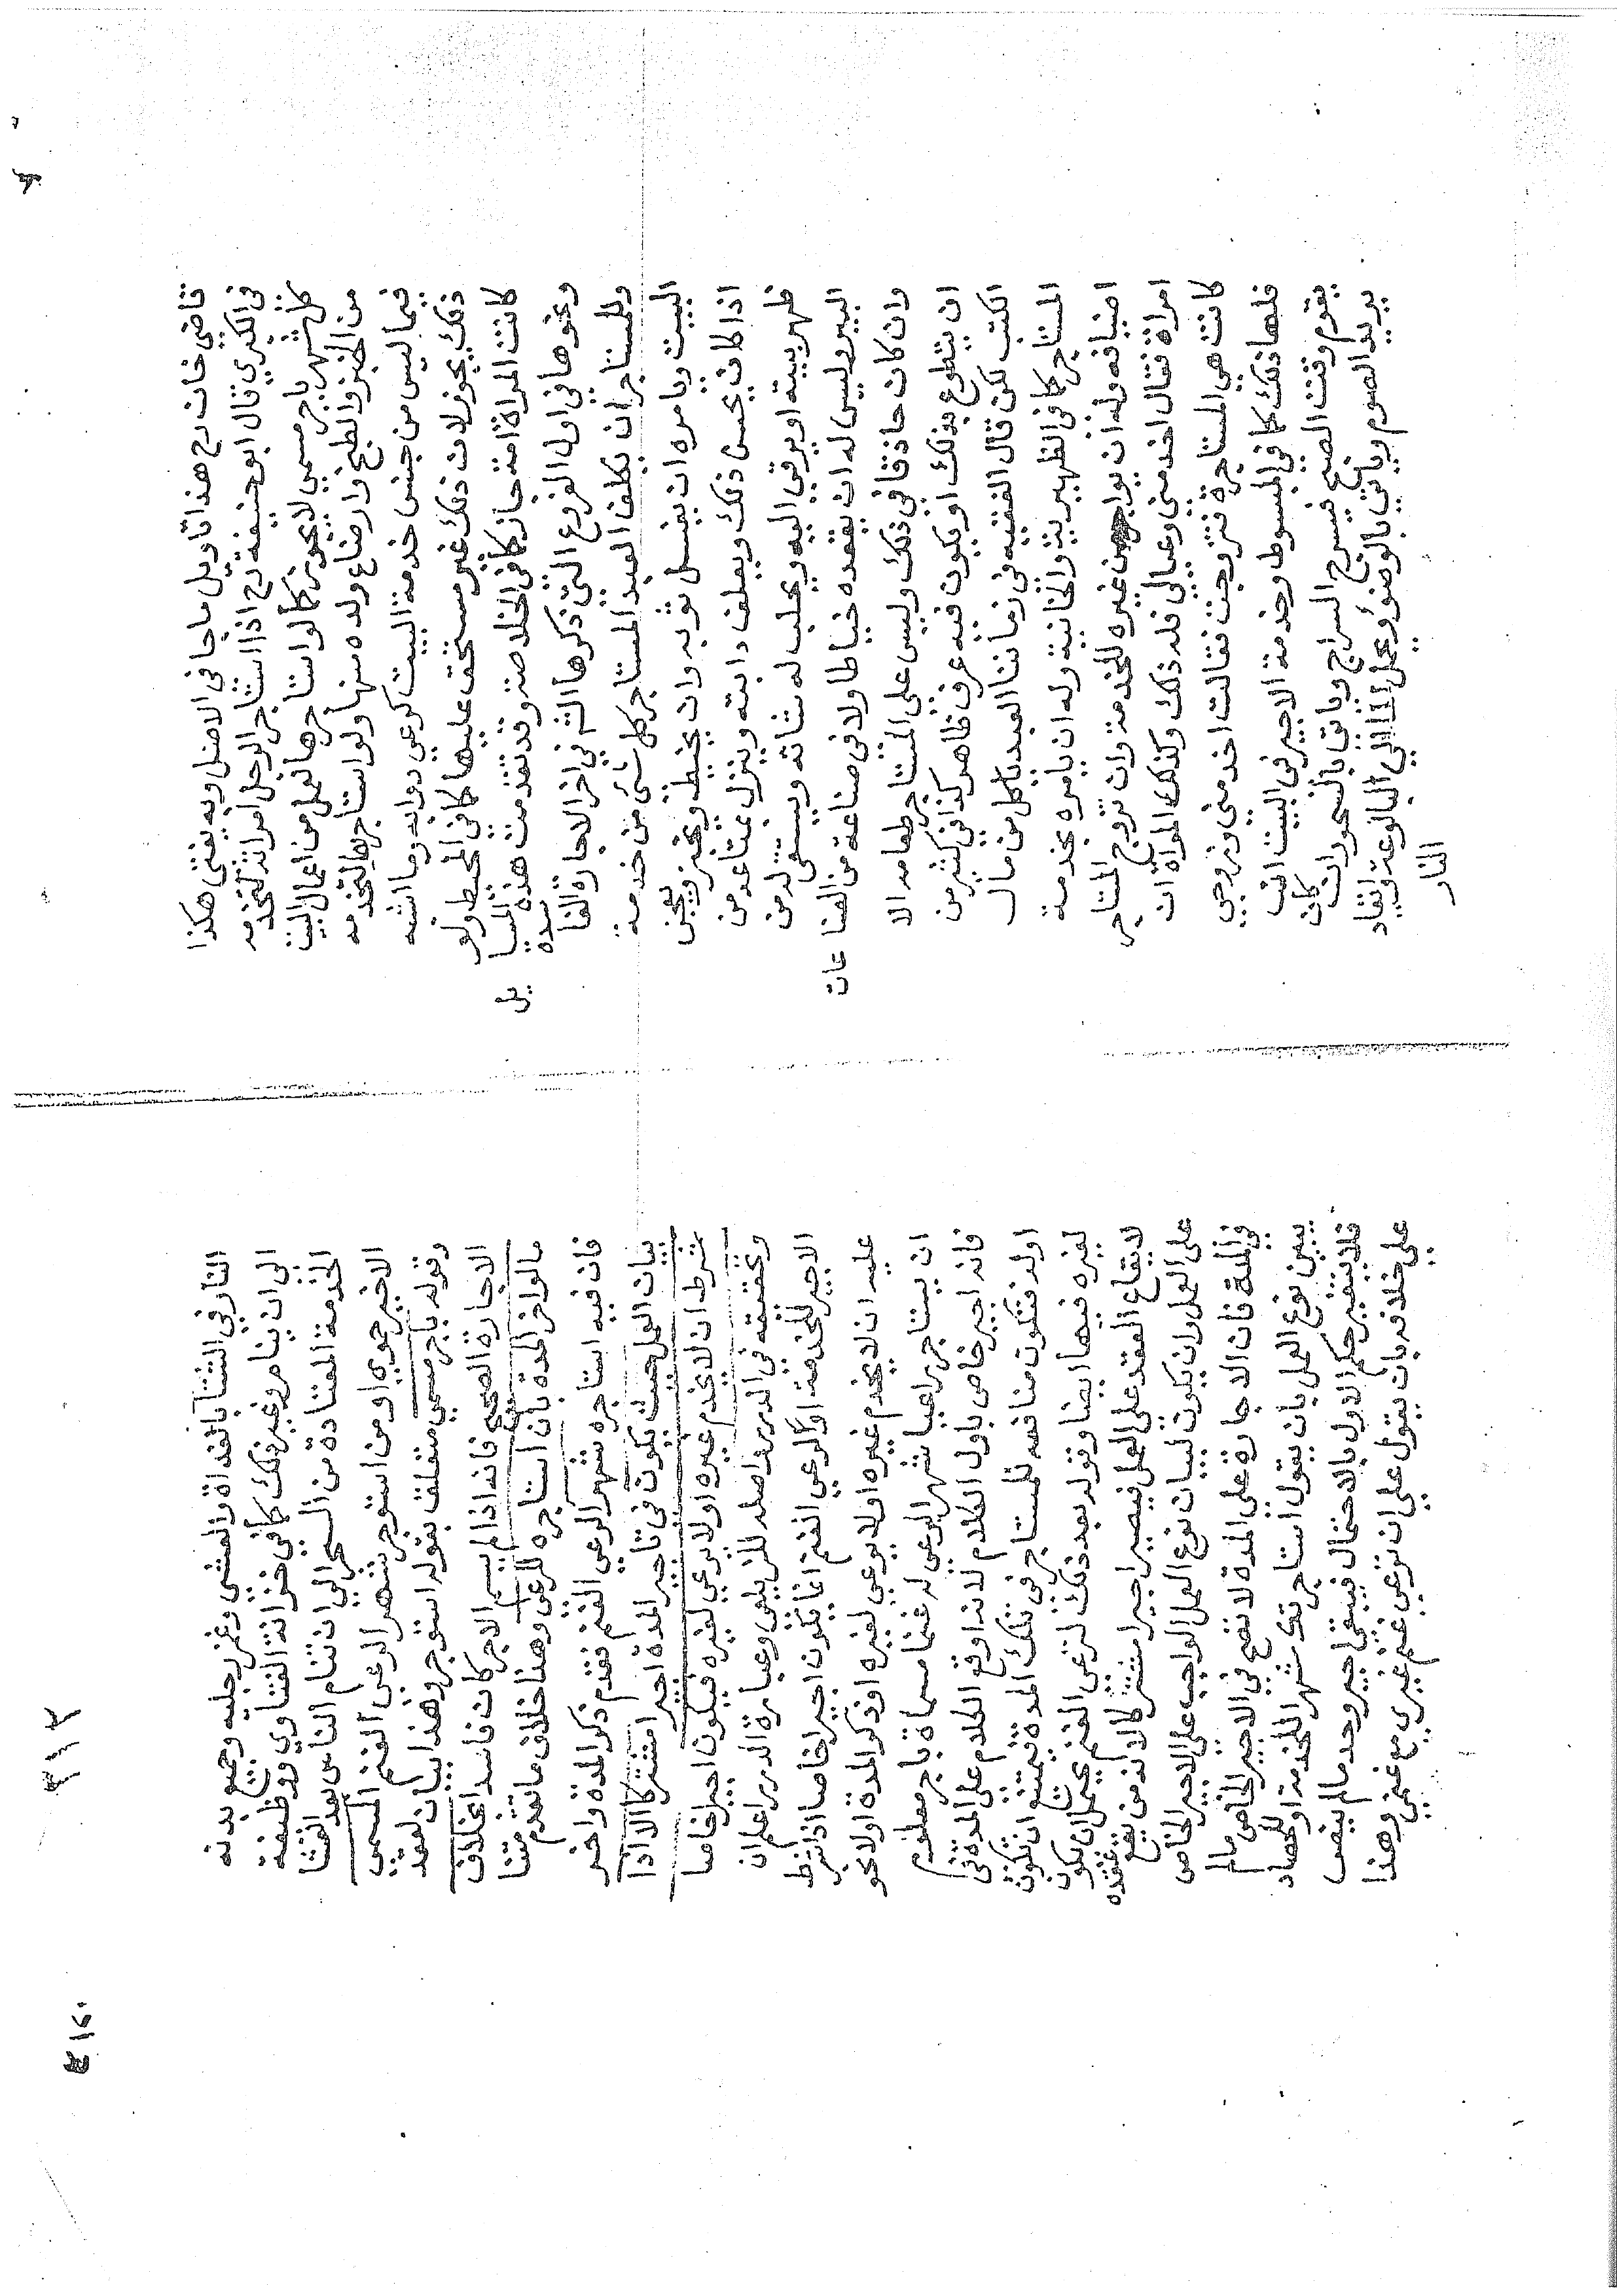 قاضي خان رح هذا تاويل ما جا في الاصل وبه يفتى هكذا
في الكبري قال ابو حنيفة رح اذا استاجر الرجل امراته لتخدمه
كل شهر باجر مسمي لا يجوز كما لو استاجرها لعمل من اعمال البيت
من الخبز والطبخ وارضاع ولده منها ولو استاجرها لتخدمه
فيما ليس من جنس خدمة البيت كرعي دوابه وما اشبه
ذلك يجوز لان ذلك غير مستحق عليها كما في المحيط ولو
كانت المراة امة جاز كما في الخلاصة وقد تقدمت هذه المسيا يل
ونحوها في اول الفروع التي ذكرها الشم في اخر الاجارة الفا سده
وللمستاجر ان يكلف العبد المستاجر كل شي من خدمة
البيت ويامره ان يغسل ثوبه وان يخيط ويخبز ويعجن
اذا كان يحسن ذلك ويعلف دابته وينزل بمتاعه من
ظهر بيته او يرقي اليه ويحلب له شاته ويستقي له من
البير وليس له ان يقعده خياطا ولا في صناعة من الصنا عات
وان كان حاذقا في ذلك وليس على المستاجر طعامه الا
ان يتطوع بذلك او يكون فيه عرف ظاهر كذا في كثير من
الكتب لكن قال الفقيه في زماننا العبد ياكل من مال
المستاجر كما في الظهيرية والخانية وله ان يامره بخدمة
اضيافه وله ان يواجره من غيره للخدمة وان تزوج المستاجر
امراة فقال اخدمني وعيالي فله ذلك وكذلك المراة ان
كانت هي المستاجرة فتزوجت فقالت اخدمني وزوجي
فلها ذلك كما في المبسوط وخدمة الاجير في البيت ان
يقوم وقت الصبح فيسرج السراج وياتي بالسحور ان كان
يريد الصوم وياتي بالوضوء ويحمل الماء الي البالوعة وايقاد
النار
النار في الشتا بالغداة والعشي وغمز رجليه وجميع بدنه
الى ان ينام وغير ذلك كما في خزانة الفتاوي ووظيفة
الخدمة المعتادة من السحر الي ان تنام الناس بعد العشا
الاخير حموي او من استوجر شهر الرعي الغنم المسمي
وقوله باجر مسمي متعلق بقوله استوجر وهذا بيان لعقد
الاجارة الصحيح فانه اذا لم يسم الاجر كان فاسدا بخلاف
ما لو اخر المدة بان استاجره للرعي وهنا خلاف ما تقدم متنا
فان فيه استاجره شهر الرعي الغنم فقدم ذكر المدة واخر
بيان العمل حيث يكون في تاخير المدة اجيرا مشتركا الا اذا
شرط ان لا يخدم غيره او لا يرعي لغيره فيكون اجيرا خاصا
وتحقيقه في الدرر واصله للزيلعي وعبارة الدرر اعلم ان
الاجير للخدمة او لرعي الغنم انما يكون اجيرا خاصا اذا شرط
عليه ان لا يخدم غيره او لا يرعي لغيره او ذكر المدة اولا نحو
ان يستاجر راعيا شهر اليرعي له غنما مسماة باجر معلوم
فانه اجير خاص باول الكلام لانه اوقع الكلام على المدة في
اوله فتكون منافعه للمستاجر في تلك المدة فيمتنع ان تكون
لغيره فيها ايضا وقوله بعد ذلك لترعي الغنم يحتمل ان يكون
لايقاع العقد على العمل فيصير اجيرا مشتركا لانه من يقع عقده
على العمل وان يكون لبيان نوع العمل الواجب على الاجير الخاص
في المدة فان الاجارة على المدة لا تصح في الاجير الخاص مالم
يبين نوع العمل بان يقول استاجرتك شهرا للخدمة او للحصاد
فلا يتغير حكم الاول بالاحتمال فيبقي اجير وحد مالم ينص
علي خلافه بان يقول علي ان ترعي غنم غيري مع غنمي وهذا